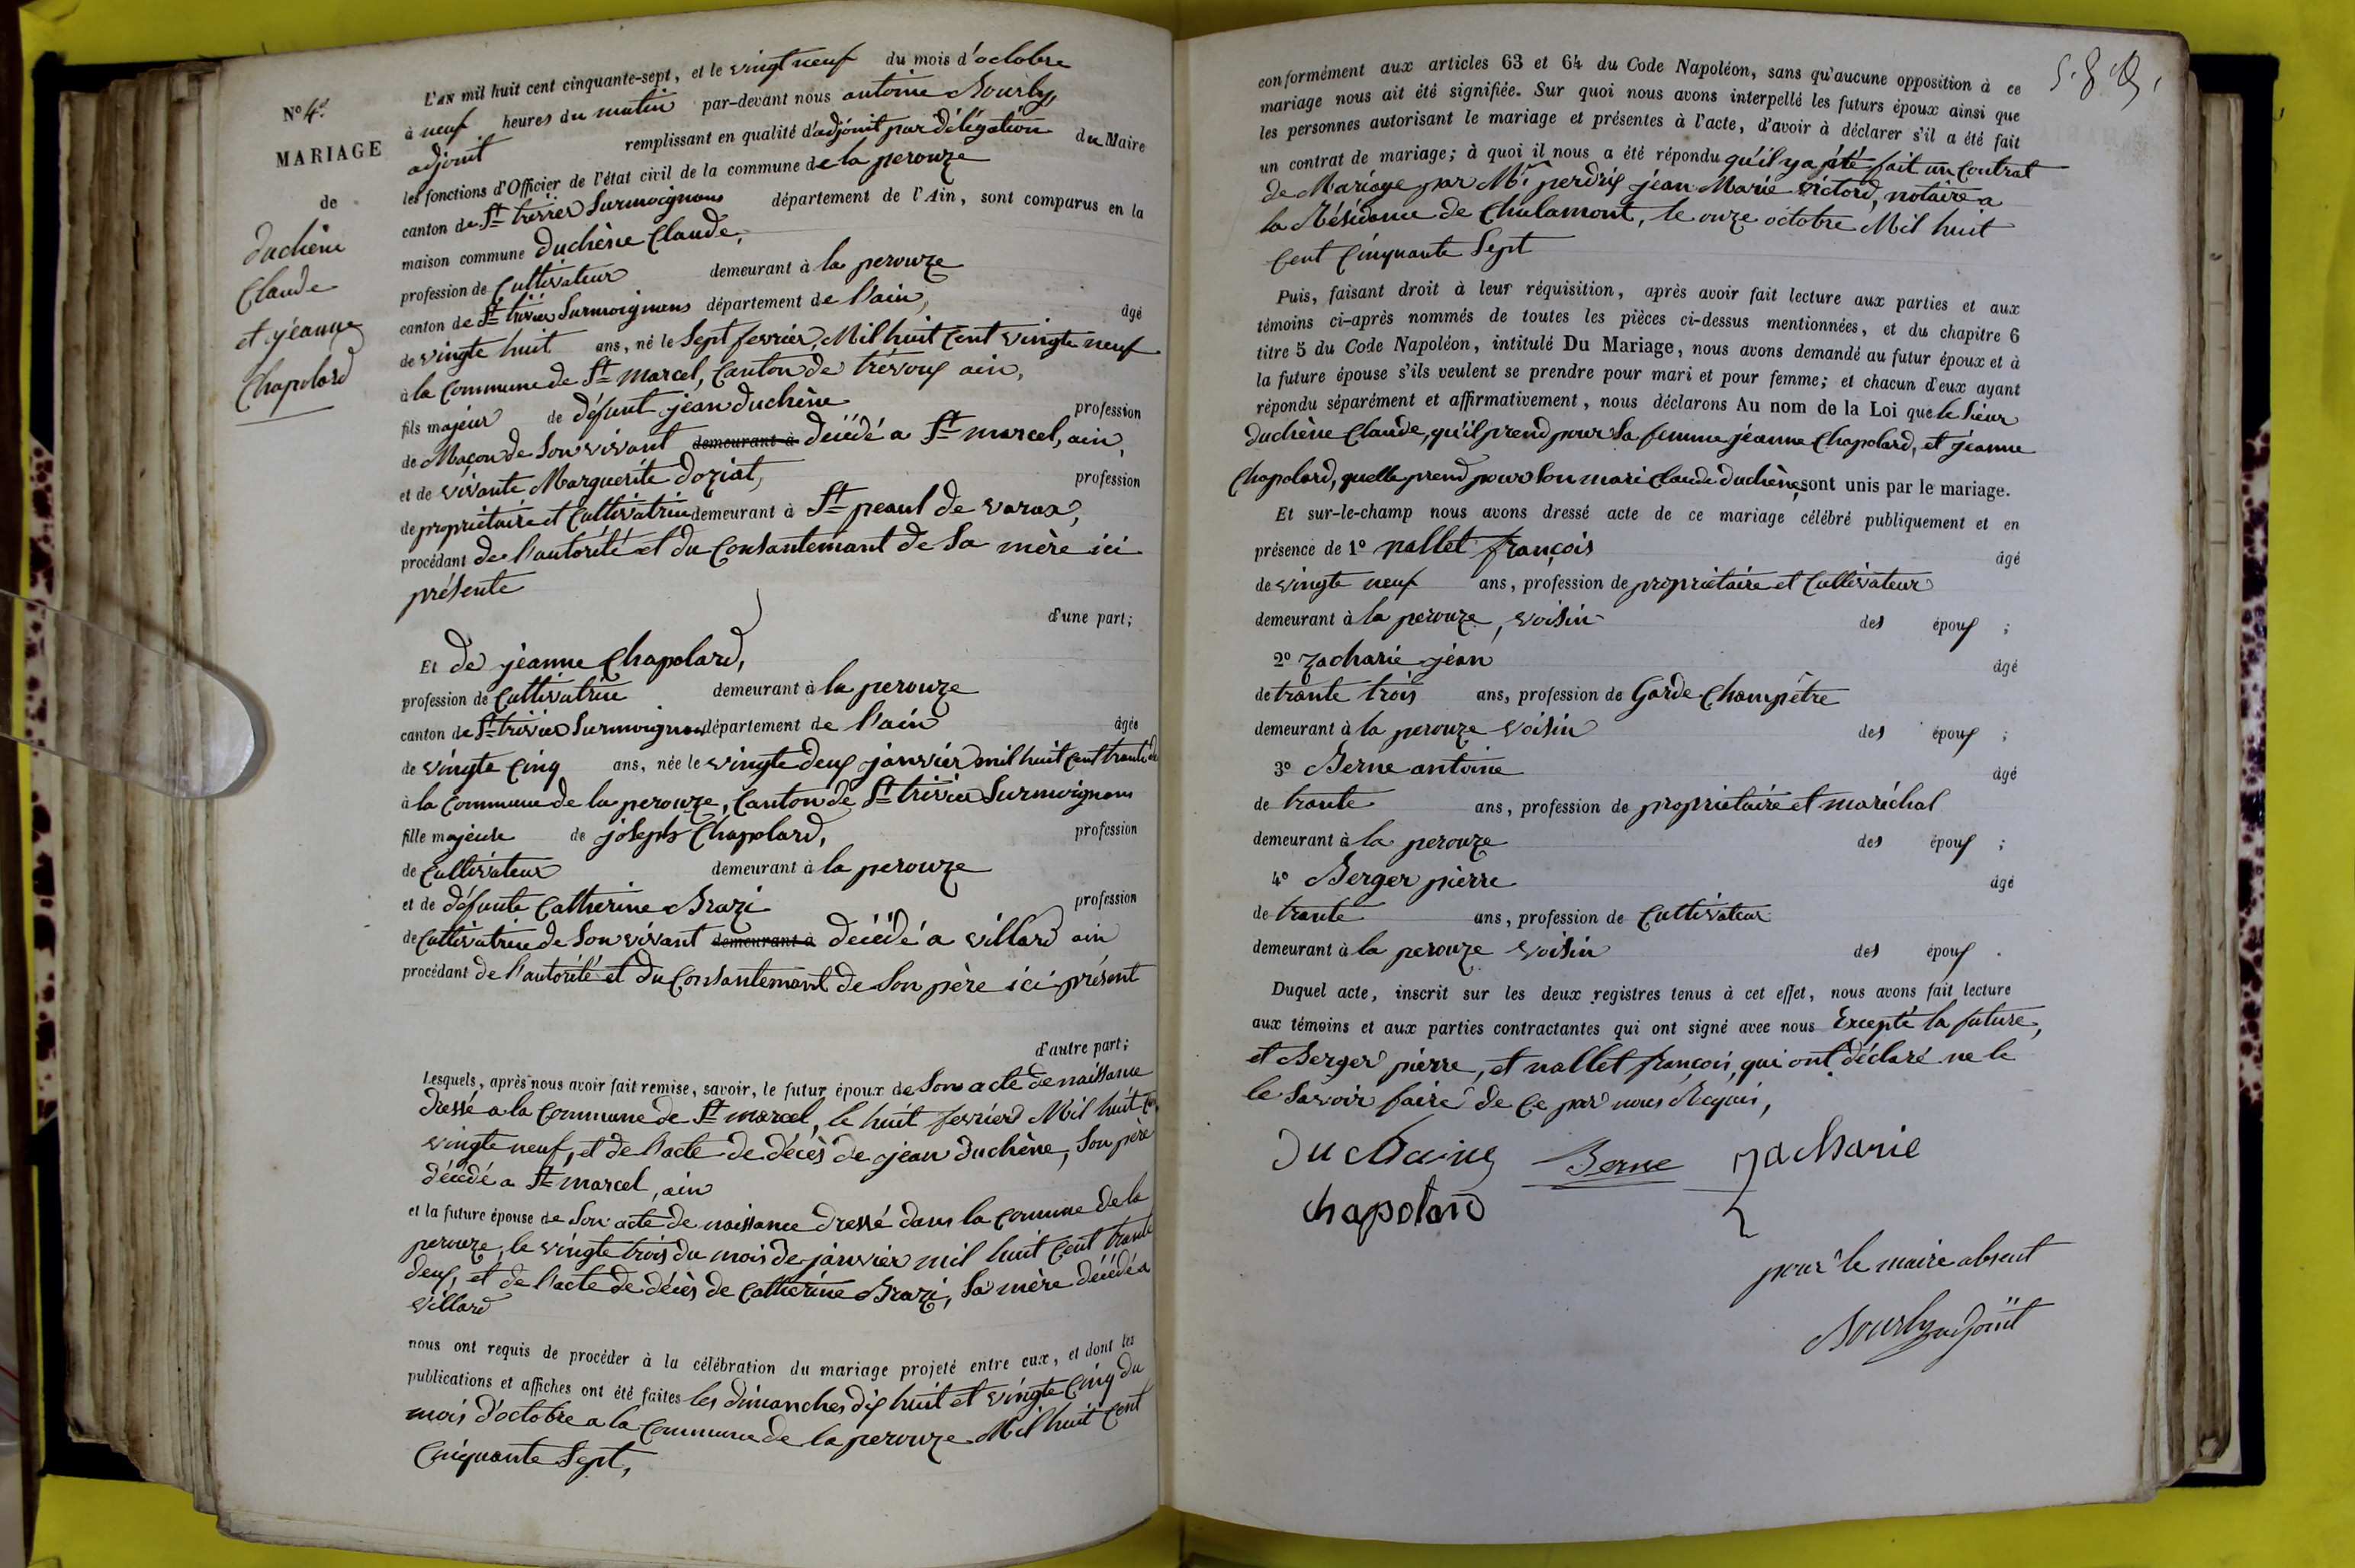 N° 4.
MARIAGE
de
duchène
Claude
et jéanne
Chapolard
L'AN mil huit cent cinquante-sept, et le vingt neuf du mois d'octobre
à neuf heures du matin par-devant nous antoine Bourly,
adjoint remplissant en qualité d'adjoint par délégation du Maire
les fonctions d'Officier de l'état civil de la commune de la perouze
canton de St trivier Surmoignans département de l'Ain, sont comparus en la
maison commune duchène Claude,
profession de Cultivateur demeurant à la perouze
canton de St trivier Surmoignans département de l'ain, âgé
de vingte huit ans, né le Sept fevrier, Mil huit Cent vingte neuf
à la Commune de St marcel, Canton de trévoux ain,
fils majeur de défunt jean duchène profession
de Maçon de Son vivant demeurant à décédé a St marcel, ain,
et de vivante Marguerite doziat, profession
de propriétaire et Cultivatrice demeurant à St peaul de varax,
procédant de l'autorité et du Consantemant de Sa mère ici
présente
d'une part;
Et de jéanne Chapolard,
profession de Cultivatrice demeurant à la perouze
canton de St trivier Surmoignans département de l'ain âgée
de vingte Cinq ans, née le vingte deux janvier mil huit Cent trante d
à la Commune de la perouze, Canton de St trivier Surmoignans
fille majeure de joseph Chapolard, profession
de Cultivateur demeurant à la perouze
et de défunte Catherine Brazi profession
de Cultivatrice de Son vivant demeurant à décédé a villard ain
procédant de l'autorité et du Consantemant de Son père ici présent
d'autre part;
Lesquels, après nous avoir fait remise, savoir, le futur époux de Son acte de naissance
dressé a la Commune de St marcel, le huit fevrier Mil huit Cen
vingte neuf, et de l'acte de décès de jean duchène, Son père
décédé a St marcel, ain
et la future épouse de Son acte de naissance dressé dans la Comune de la
perouze, le vingte trois du mois de janvier mil huit Cent trante
deux, et de l'acte de décès de Catherine Brazi, Sa mère décédé a
villard
nous ont requis de procéder à la célébration du mariage projeté entre eux, et dont les
publications et affiches ont été faites les dimanches dix huit et vingte Cinq du
mois d'octobre a la Commune de la perouze Mil huit Cent
Cinquante Sept,
conformément aux articles 63 et 64 du Code Napoléon, sans qu'aucune opposition à ce
mariage nous ait été signifiée. Sur quoi nous avons interpellé les futurs époux ainsi que
les personnes autorisant le mariage et présentes à l'acte, d'avoir à déclarer s'il a été fait
un contrat de mariage; à quoi il nous a été répondu qu'il y a été fait un Contrat
de Mariage par Mr perdrix jean Marie victord, notaire a
la Résidence de Chalamont, le onze octobre Mil huit
Cent Cinquante Sept
Puis, faisant droit à leur réquisition, après avoir fait lecture aux parties et aux
témoins ci-après nommés de toutes les pièces ci-dessus mentionnées, et du chapitre 6
titre 5 du Code Napoléon, intitulé Du Mariage, nous avons demandé au futur époux et à
la future épouse s'ils veulent se prendre pour mari et pour femme; et chacun d'eux ayant
répondu séparément et affirmativement, nous déclarons Au nom de la Loi que le Sieur
duchène Claude, qu'il prend pour Sa femme jéanne Chapolard, et jéanne
Chapolard, quelle prend pour Son mari Claude duchène, sont unis par le mariage.
Et sur-le-champ nous avons dressé acte de ce mariage célébré publiquement et en
présence de 1° nallet françois âgé
de vingte neuf ans, profession de propriétaire et Cultivateur
demeurant à la perouze, voisin des époux ;
2° zacharie jéan âgé
de trante trois ans, profession de Garde Champêtre
demeurant à la perouze voisin des époux ;
3° Berne antoine âgé
de trante ans, profession de propriétaire et maréchal
demeurant à la perouze des époux ;
4° Berger pierre âgé
de trante ans, profession de Cultivateur
demeurant à la perouze voisin des époux .
Duquel acte, inscrit sur les deux registres tenus à cet effet, nous avons fait lecture
aux témoins et aux parties contractantes qui ont signé avec nous Excepté la future,
et Berger pierre, et nallet françois, qui ont déclaré ne le
le Savoir faire de Ce par nous Requis,
Duchaine Berne zacharie
chapolard
pour le maire absent
Bourly adjoint